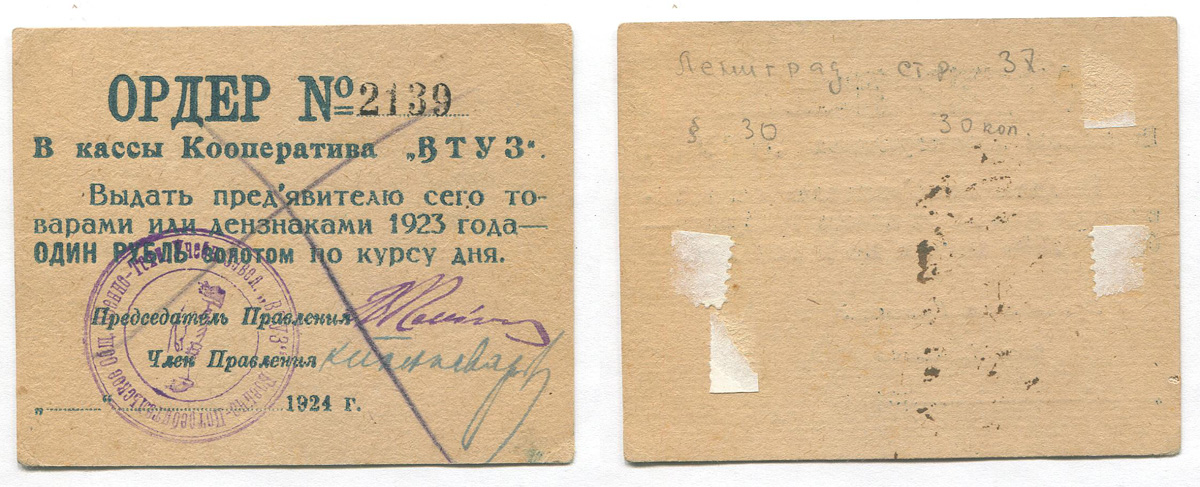 ОРДЕР №2139
В кассы Кооператива „ВТУЗ“.
Выдать пред'явителю сего то-
варами или дензнаками 1923 года—
ОДИН РУБЛЬ золотом по курсу дня.
Председатель Правления
Член Правления
„ “ 1924 г.
Ленинград стр. 37.
§ 30 30 коп.